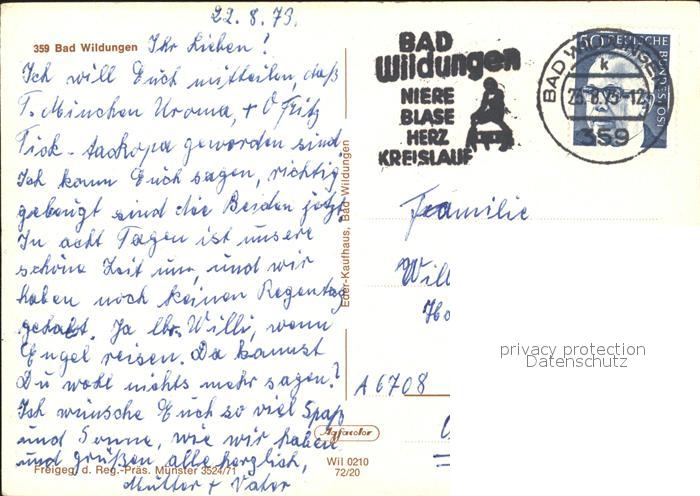 22.8.73.
359 Bad Wildungen
Ihr Lieben!
Ich will Euch mitteilen, daß
T. Minchen Uroma, + O Fritz
Tick-tackopa geworden sind
Ich kann Euch sagen, richtig
gebeugt sind die Beiden jetzt.
In acht Tagen ist unsere
schöne Zeit um, und wir
haben noch keinen Regentag
gehabt. Ja lbr. Willi, wenn
Engel reisen. Da kannst
Du wohl nichts mehr sagen?
Ich wünsche Euch so viel Spaß
und Sonne, wie wir haben
und grüßen alle herzlich,
Mutter + Vater
Freigeg. d. Reg.-Präs. Münster 3524/71
Eder-Kaufhaus, Bad Wildungen
BAD
Wildungen
NIERE
BLASE
HERZ
KREISLAUF
BAD WILDUNGEN
k
23.8.73-12
359
50 DEUTSCHE
BUNDESPOST
Familie
Will
Ho
A6708
Agfacolor
Wil 0210
72/20
privacy protection
Datenschutz